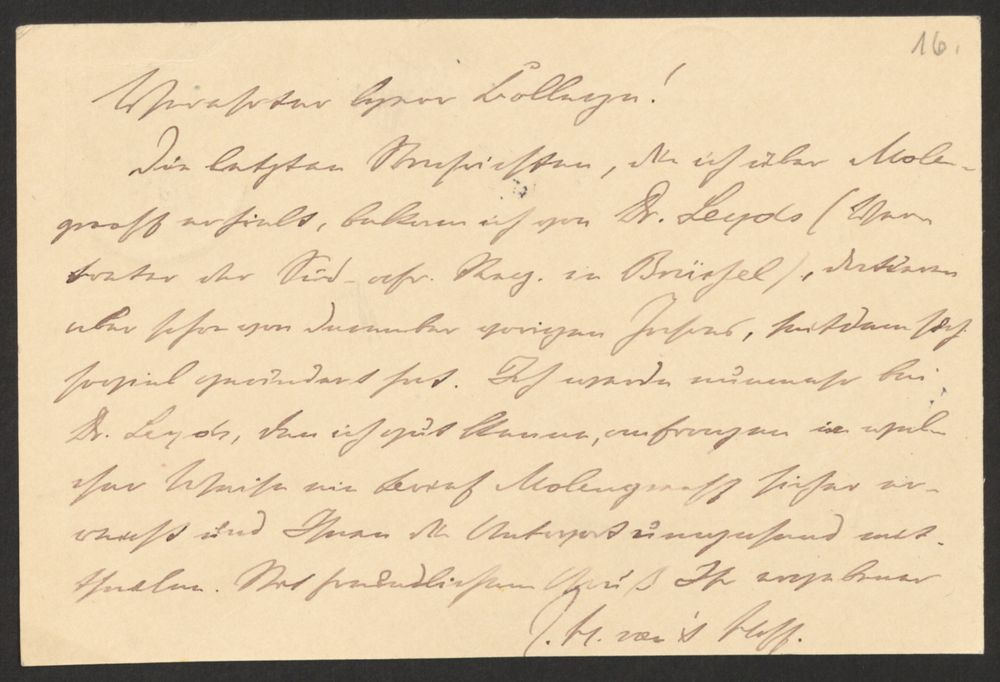 16.
Verehrter Herr College!
Die letzten Nachrichten, die ich über Molen-
graaff erhielt, bekam ich von Dr. Leyds (Ver-
treter der Süd-afr. Reg. in Brüssel), datieren
aber schon von December vorigen Jahres, seitdem sich
soviel geändert hat. Ich werde nunmehr bei
Dr. Leyds, den ich gut kenne, anfragen in wel-
cher Weise ein Brief Molengraaff sicher er-
reicht und Ihnen die Antwort umgehend mit-
theilen. Mit freundlichem Gruß Ihr ergebener
J. H. van 't Hoff.